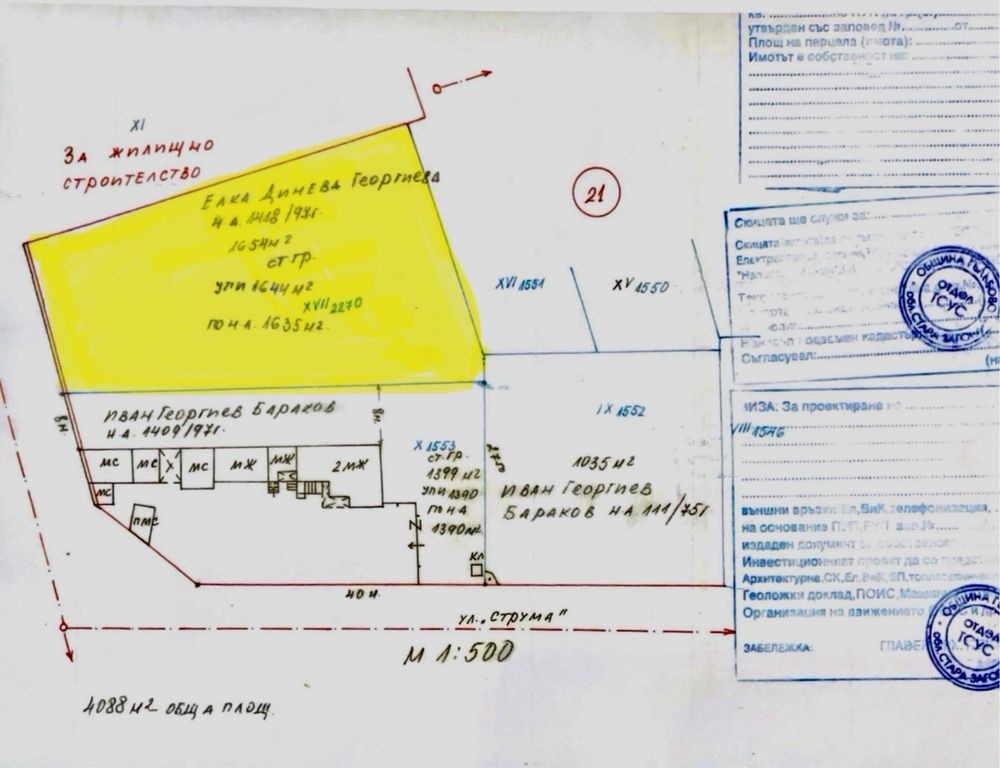 утвърден със заповед №
от
Площ на парцела (имота):
Имотът е собственост на:
XI
ЗА ЖИЛИЩНО
СТРОИТЕЛСТВО
ЕЛКА ДИНЕВА ГЕОРГИЕВА
Н.А. 1418/97г.
1654 м²
СТ.ГР.
УПИ 1644 м²
XVII 2270
ПО Н.А. 1635 м².
21
XVI 1551
XV 1550
Скицата ще служи за:
Съгласувал:
ОБЩИНА ГЪЛЪБОВО
ОТДЕЛ
ТСУС
ОБЛ. СТАРА ЗАГОРА
8 м.
ИВАН ГЕОРГИЕВ БАРАКОВ
Н.А. 1409/97г.
8 м.
IX 1552
ВИЗА: За проектиране на
VIII 1546
X 1553
СТ.ГР.
1399 м²
УПИ 1390
ПО Н.А
1390 м²
1035 м²
ИВАН ГЕОРГИЕВ
БАРАКОВ НА 111/75г.
МС
МС
МС
МЖ
МЖ
2МЖ
МС
ПМС
КЛ
външни връзки: Ел, ВиК, телефонизация,
на основание
издаден документ за
Инвестиционният проект да се
Архитектурна, СК, Ел, ВиК, ВП,
Геоложки доклад, ПОИС,
Организация на движението
40 м.
УЛ. „СТРУМА"
М 1:500
ЗАБЕЛЕЖКА:
ОБЩИНА
ОТДЕЛ
ТСУС
ОБЛ. СТАРА ЗАГОРА
4088 м² ОБЩА ПЛОЩ.